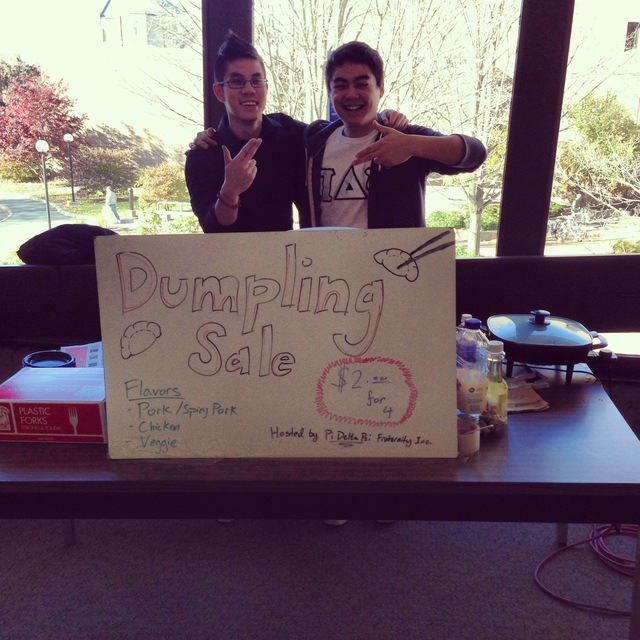 ΠΔΨ
Dumpling
Sale
Flavors
- Pork/Spicy Pork
- Chicken
- Veggie
$2.00
for
4
Hosted by Pi Delta Psi Fraternity Inc.
PLASTIC
FORKS